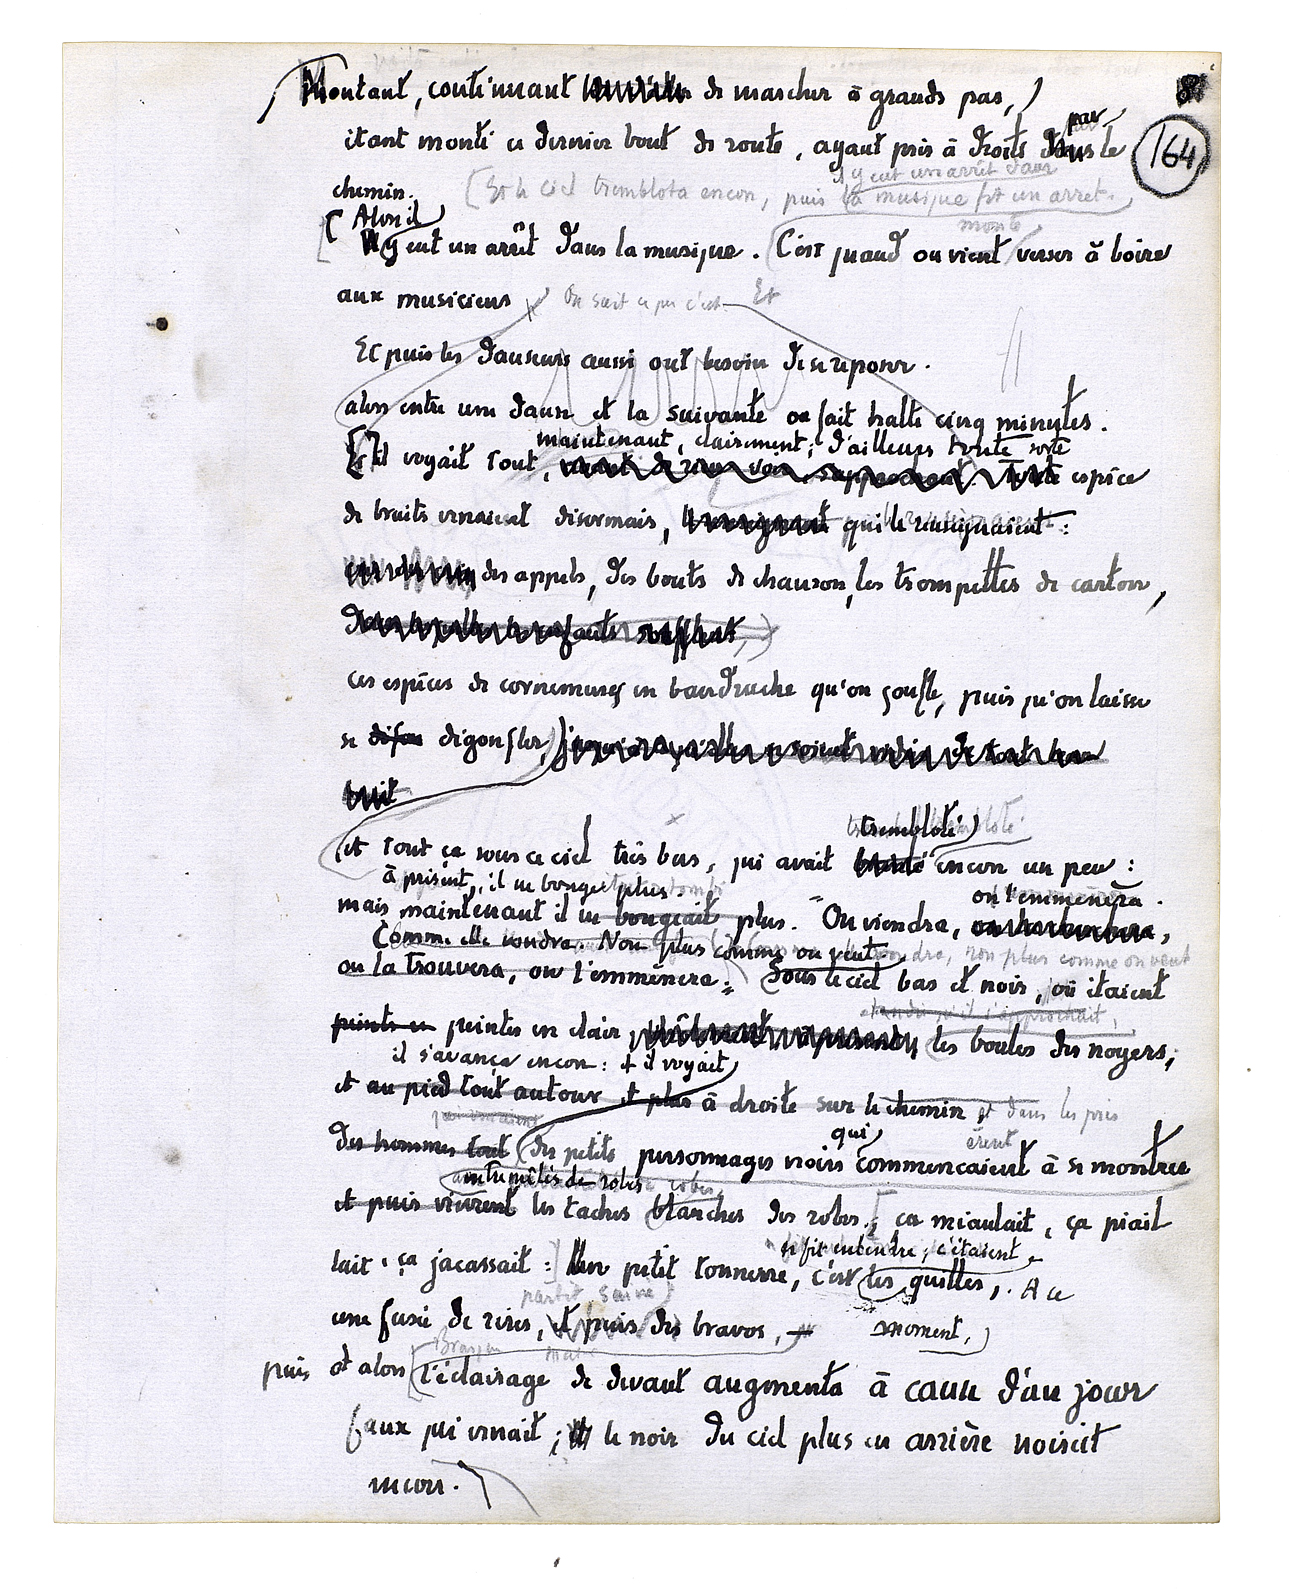 8
164
Montant, continuant de marcher à grands pas,
étant monté ce dernier bout de route, ayant pris à droite dans le
par
il y eut un arrêt dans
chemin. [Et le ciel tremblota encore, puis la musique fit un arrêt.
Alors il
monte
Il y eut un arrêt dans la musique. C'est quand on vient verser à boire
aux musiciens On sait ce que c'est Et
Et puis les danseurs aussi ont besoin de se reposer.
alors entre une danse et la suivante on fait halte cinq minutes.
maintenant, clairement; d'ailleurs toute sorte
Et il voyait tout, s'approchant. Toute espèce
de bruits venaient désormais, qui le renseignaient :
des appels, des bouts de chanson, les trompettes de carton,
dans lesquelles les enfants soufflent,
ces espèces de cornemuses en baudruche qu'on gonfle, puis qu'on laisse
se dégonfler,
trembloté
et tout ça sous ce ciel très bas, qui avait encore un peu :
à présent, il ne bougeait plus.
on l'emmènera.
mais maintenant il ne bougeait plus. On viendra,
Comme elle voudra. Non plus comme on veut
on la trouvera, on l'emmènera; Sous le ciel bas et noir, où étaient
tandis qu'il s'approchait,
peints en peintes en clair les boules des noyers,
il s'avança encore : + il voyait
et au pied tout autour et plus à droite sur le chemin et dans les prés
qui
èrent
des hommes tout des petits personnages noirs commençaient à se montrer
entremêlés de robes
et puis vinrent les taches blanches des robes; ça miaulait, ça piail
se fit entendre; c'étaient
lait, ça jacassait : Un petit tonnerre, c'est les quilles,. A ce
partit suivie
une fusée de rires, et puis des bravos, moment,
puis et alors l'éclairage de devant augmenta à cause d'un jour
faux qui venait; et le noir du ciel plus en arrière noircit
encore.